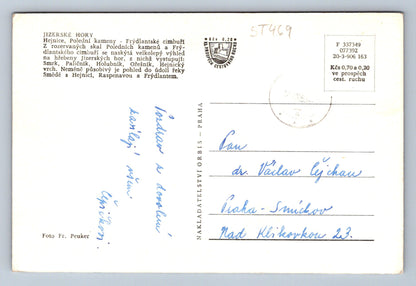 JIZERSKÉ HORY
Hejnice, Polední kameny - Frýdlantské cimbuří
Z rozervaných skal Poledních kamenů a Frý-
dlantského cimbuří se naskýtá velkolepý výhled
na hřebeny Jizerských hor, z nichž vystupují:
Smrk, Paličník, Holubník, Ořešník, Hejnický
vrch. Neméně působivý je pohled do údolí řeky
Smědé s Hejnicí, Raspenavou a Frýdlantem.
Kčs 0,30
ST469
F 337349
077392
20-3-906 163
Kčs 0,70 a 0,30
ve prospěch
cest. ruchu
Pozdrav z dovolené
zasílají všem
NAKLADATELSTVÍ ORBIS - PRAHA
Pan
dr. Václav
Praha - Smíchov
Nad 23.
Foto Fr. Peuker